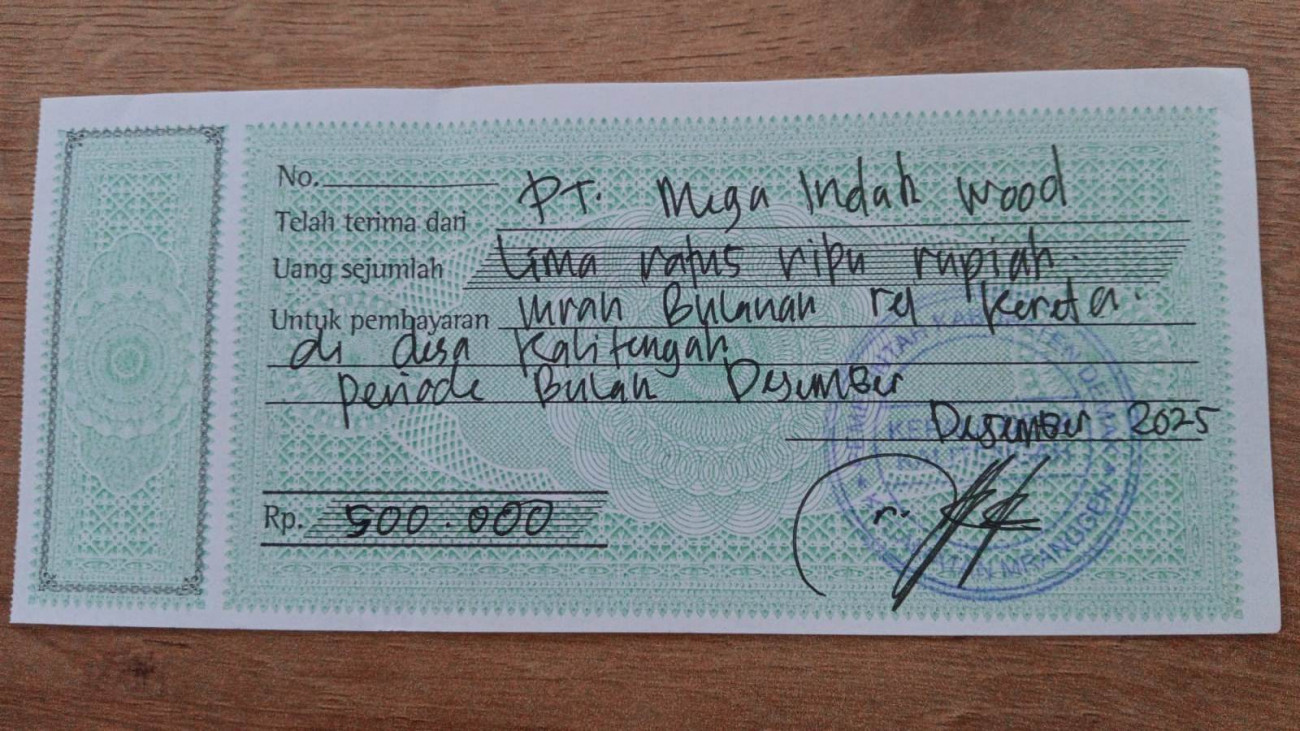 No.
Telah terima dari PT. Mega Indah Wood
Uang sejumlah Lima ratus ribu rupiah.
Untuk pembayaran iuran Bulanan rel Kereta.
di desa Kalitengah
periode Bulan Desember
Desember 2025
Rp. 500.000
KECAMATAN MRANGGEN